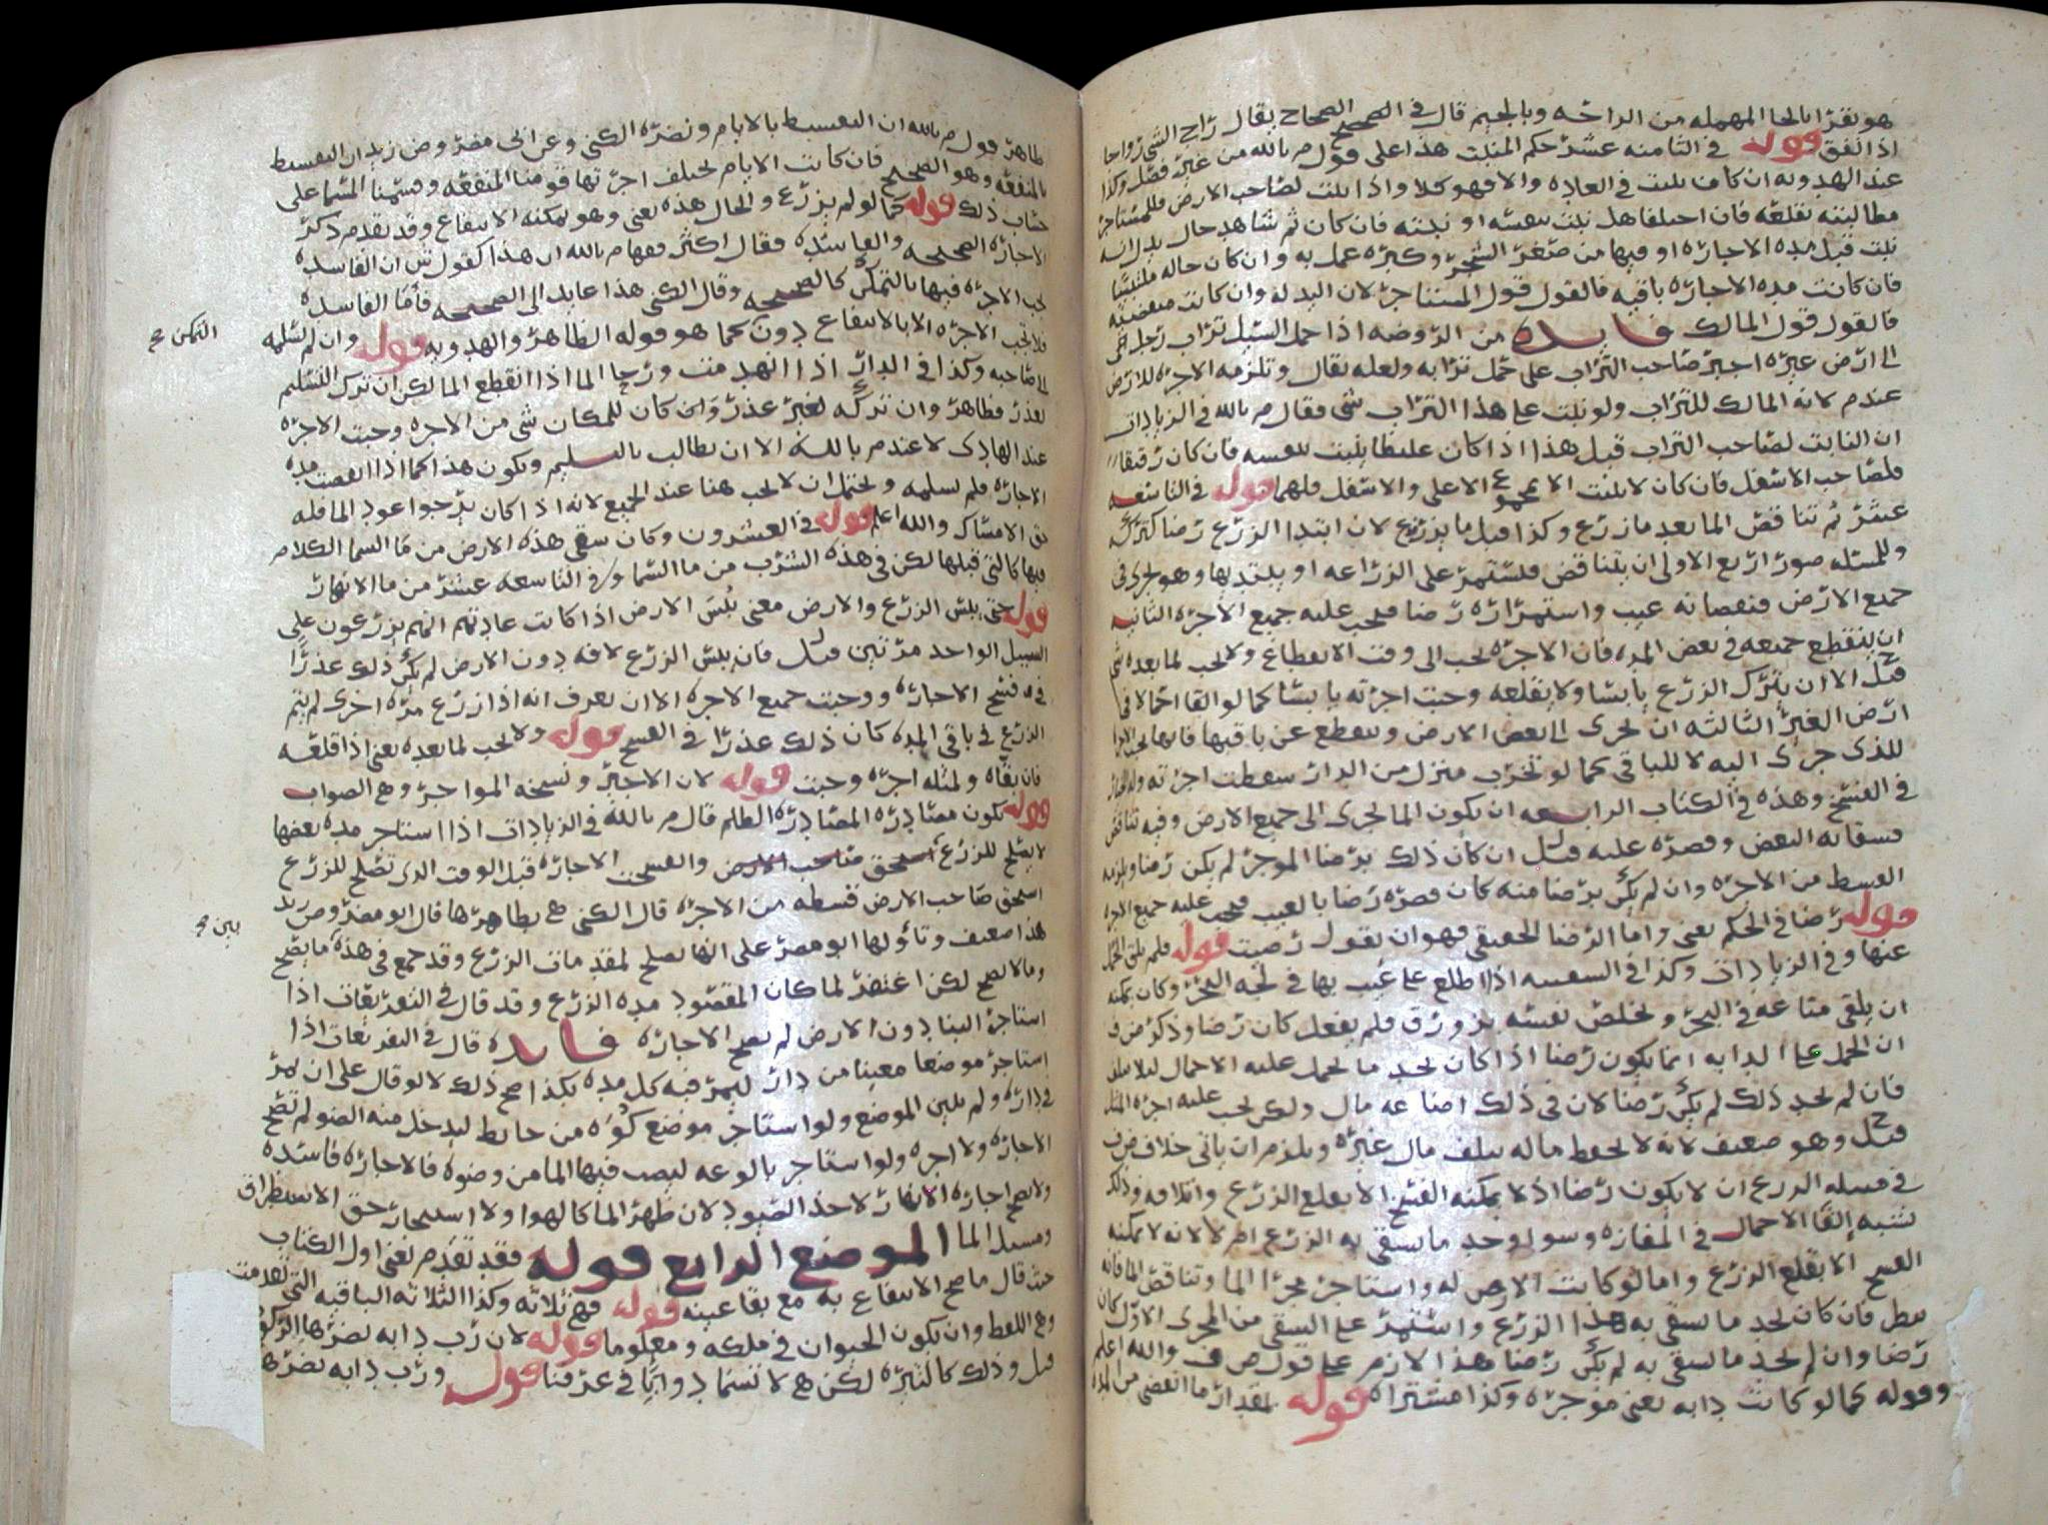 هو يقرا بالحا المهمله من الراحه وبالجيم قال في الصحاح يقال راج الشي رواجا
اذا نفق قوله في الثامنه عشر حكم المنبت هذا على قول م بالله من غير فصل وكذا
عند الهدويه ان كان نبت في العاده والا فهو كلا واذا نبت لصاحب الارض فللمستاجر
مطالبته بقلعه فان اختلفا هل نبت بنفسه او نبته فان كان ثم شاهد حال يدل انه
نبت قبل مده الاجاره او فيها من صغر الشجر وكبره عمل به وان كان حاله ملتبسا
فان كانت مده الاجاره باقيه فالقول قول المستاجر لان اليد له وان كانت منقضيه
فالقول قول المالك فايده من الروضه اذا حمل السيل تراب رجل
الى ارض غيره اجبر صاحب التراب على حمل ترابه ولعله يقال وتلزمه الاجره للارض
عندم لانه المالك للتراب ولو نبت على هذا التراب شي فقال م بالله في الزيادات
ان النابت لصاحب التراب قيل هذا اذا كان غليظا ينبت بنفسه فان كان رقيقا
فلصاحب الاسفل فان كان لا ينبت الا بمجموع الاعلى والاسفل فلهما قوله في التاسعه
عشر ثم تناقص الما بعد ما زرع وكذا قبل ما يزرع لان ابتدا الزرع رضا كتركه
وللمسله صور اربع الاولى ان يتناقص فيستمر على الزراعه او يبتديها وهو يجري في
جميع الارض فنقصانه عيب واستمراره رضا فيجب عليه جميع الاجره الثانيه
ان ينقطع جميعه في بعض المده فان الاجره تجب الى وقت الانقطاع ولا تجب لما بعده شي
قيل الا ان يترك الزرع يابسا ولا يقلعه وجبت اجرته يابسا كما لو القا احمالا في
ارض الغير الثالثه ان يجرى الى بعض الارض وينقطع عن باقيها فانها تجب الاجره
للذي جرى اليه لا للباقي كما لو تخرب منزل من الدار سقطت اجرته وله الخيار
في الفسخ وهذه في الكتاب الرابعه ان يكون الما يجرى الى جميع الارض وفيه تناقص
فسقا به البعض وقصره عليه قيل ان كان ذلك برضا الموجر لم يكن رضا ويلزمه
القسط من الاجره وان لم يكن برضا منه كان قصره رضا بالعيب فيجب عليه جميع الاجره
قوله رضا في الحكم يعني واما الرضا الحقيقي فهو ان يقول رضيت قوله فلم يلق الحمل
عنها وفي الزيادات وكذا في السفينه اذا اطلع على عيب بها في لجه البحر وكان يمكنه
ان يلقى متاعه في البحر ويخلص نفسه بزورق فلم يفعل كان رضا وذكر ض ف
ان الحمل على الدابه انما يكون رضا اذا كان يجد ما يحمل عليه الاحمال ليلا يتلف
فان لم يجد ذلك لم يكن رضا لان في ذلك اضاعه مال ولكن يجب عليه اجره المثل
قيل وهو ضعيف لانه لا يحفظ ماله بتلف مال غيره ويلزم ان ياتي خلاف ض ف
في مسله الزرع ان لا يكون رضا اذ لا يمكنه الفسخ الا بقلع الزرع واتلافه وذلك
يشبه القا الاحمال في المفازه وسوا وجد ما يسقى به الزرع ام لا لانه لا يمكنه
الفسخ الا بقلع الزرع واما لو كانت الارض له واستاجر مجرا الما وتناقص الما فانه
ينظر فان كان يجد ما يسقى به هذا الزرع واستمر على السقي من المجرى الاول كان
رضا وان لم يجد ما يسقى به لم يكن رضا هذا الازم على قول ض ف والله اعلم
وقوله كما لو كانت دابه يعني موجره وكذا مشتراه قوله بمقدار ما انقضى من المده
ظاهر قول م بالله ان التقسيط بالايام ونصره الكني وعن ابى مضر وض زيد ان التقسيط
بالمنفعه وهو الصحيح فان كانت الايام تختلف اجرتها قومنا المنفعه وقسمنا المسما على
حساب ذلك قوله كما لو لم يزرع والحال هذه يعنى وهو يمكنه الانتفاع وقد تقدم ذكر
الاجاره الصحيحه والفاسده فقال اكثر فقها م بالله ان هذا كقول ش ان الفاسده
تجب الاجره فيها بالتمكن كالصحيحه وقال الكنى هذا عايد الى الصحيحه فأما الفاسده
فلا تجب الاجره الا بالانتفاع دون كما هو قوله الظاهر والهدويه قوله وان لم يسلمه
الى صاحبه وكذا في الدار اذا انهدمت ورجا الما اذا انقطع المالكن ان ترك التسليم
لعذر فظاهر وان تركه لغير عذر وان كان للمكان شي من الاجره وجبت الاجره
عند الهادى لا عند م بالله الا ان يطالب بالتسليم ويكون هذا كما اذا انقضت مده
الاجاره فلم يسلمه ويحتمل ان لا يجب هنا عند الجميع لانه اذا كان يرجوا عود الما فله
حق الامساك والله اعلم قوله في العشرون وكان سقى هذه الارض من ما السما الكلام
فيها كالتي قبلها لكن في هذه الشرب من ما السما وفي التاسعه عشر من ما الانهار
قوله حتى يبس الزرع والارض معنى يُبس الارض اذا كانت عادتهم انهم يزرعون على
السيل الواحد مرتين قيل فان يبس الزرع لافه دون الارض لم يكن ذلك عذرا
في فسخ الاجاره ووجبت جميع الاجره الا ان يعرف انه اذا زرع مره اخرى لم يتم
الزرع في باقي المده كان ذلك عذرا في الفسخ قوله ولا تجب لما بعده يعنى اذا قلعه
فان بقاه ولمثله اجره وجبت قوله لان الاجير ونسخه المواجر وهى الصواب
قوله يكون مصادره المصادره الظلم قال م بالله في الزيادات اذا استاجر مده بعضها
لا يصلح للزرع استحق صاحب الارض وانفسخت الاجاره قبل الوقت الذى تصلح للزرع
استحق صاحب الارض قسطه من الاجره قال الكنى هى بظاهرها قال ابو مضر وض زيد
هذا ضعيف وتأولها ابو مضر على انها تصلح لمقدمات الزرع وقد جمع في هذه ما يصح
وما لا يصح لكن اغتفر لما كان المقصود مده الزرع وقد قال في التفريعات اذا
استاجر البنا دون الارض لم تصح الاجاره فايده قال في التفريعات اذا
استاجر موضعا معينا من دار ليمر فيه كل مده بكذا صح ذلك لا لو قال على ان يمر
في داره ولم يبين الموضع ولو استاجر موضع كوه من حايط ليدخل منه الضو لم تصح
الاجاره ولا اجره ولو استاجر بالوعه ليصب فيها الما من وضوه فالاجاره فاسده
ولا تصح اجاره الانهار لاخذ الصيود لان ظهر الما كالهوا ولا استيجار حق الاستطراق
ومسيل الما الموضع الرابع قوله فقد تقدم يعنى اول الكتاب
حيث قال ما صح الانتفاع به مع بقا عينه قوله فهي ثلاثه وكذا الثلاثه الباقيه التي تقدمت
وهى اللفظ وان يكون الحيوان في ملكه ومعلوما قوله لان رب دابه يضرها الركوب
قيل وذلك كالثيره لكن هى لا تسما دوابًا في عرفنا قوله ورب دابه يضرها
التمكن صح
بين صح